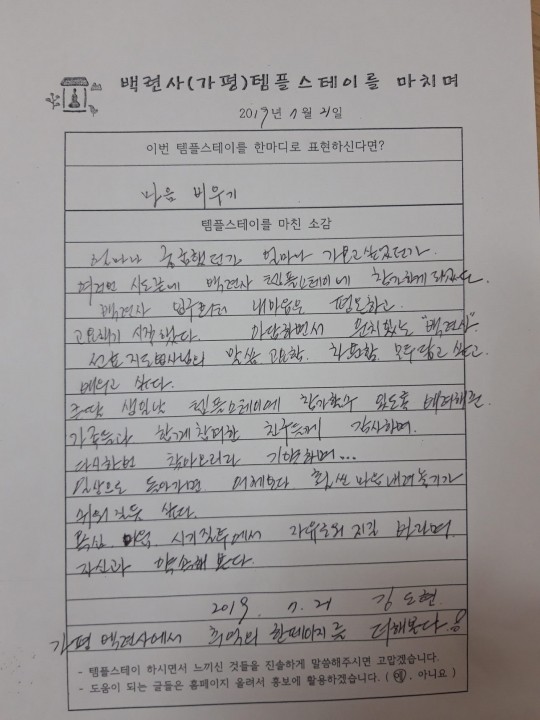 백련사(가평)템플스테이를 마치며
2019년 7월 21일
이번 템플스테이를 한마디로 표현하신다면?
마음 비우기
템플스테이를 마친 소감
얼마나 궁금했던가 얼마나 가보고 싶었던가
여러번 시도끝에 백련사 템플스테이에 참가하게 되었다.
백련사 입구부터 내마음은 평온하고
고요해지기 시작했다. 아담하면서 운치있는 "백련사".
선호 지도법사님의 말씀 고요함. 차분함. 모두 담고 싶고.
배우고 싶다.
주말 생일날 템플스테이에 참가할수 있도록 배려해준
가족들과 함께 참여한 친구들께 감사하며.
다시한번 찾아오리라 기약하며...
일상으로 돌아가면 어제보다 훨씬 마음 내려놓기가
쉬워질듯 싶다.
욕심 미움 시기 질투에서 자유로워지길 바라며
자신과 약속해 본다.
2019. 7. 21 김도현
가평 백련사에서 추억의 한페이지를 더해본다.
- 템플스테이 하시면서 느끼신 것들을 진솔하게 말씀해주시면 고맙겠습니다.
- 도움이 되는 글들은 홈페이지 올려서 홍보에 활용하겠습니다. ( 예, 아니요 )